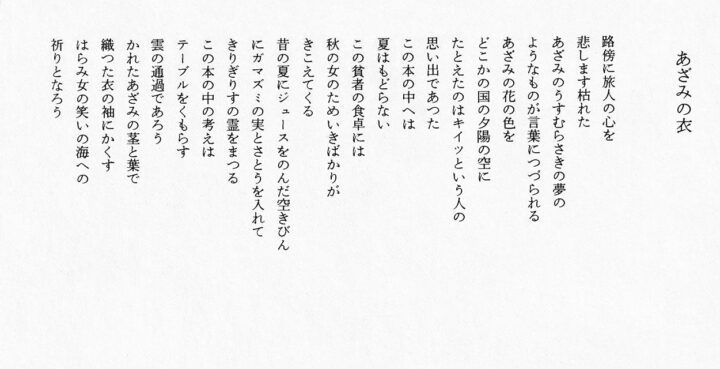 あざみの衣
路傍に旅人の心を
悲します枯れた
あざみのうすむらさきの夢の
ようなものが言葉につづられる
あざみの花の色を
どこかの国の夕陽の空に
たとえたのはキイツという人の
思い出であつた
この本の中へは
夏はもどらない
この貧者の食卓には
秋の女のためいきばかりが
きこえてくる
昔の夏にジュースをのんだ空きびん
にガマズミの実とさとうを入れて
きりぎりすの霊をまつる
この本の中の考えは
テーブルをくもらす
雲の通過であろう
かれたあざみの茎と葉で
織つた衣の袖にかくす
はらみ女の笑いの海への
祈りとなろう